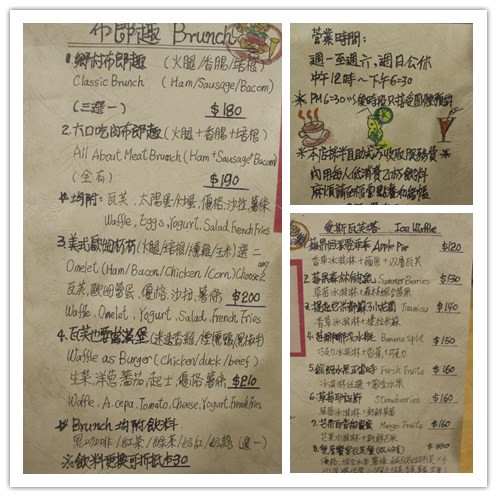 布郎趣 Brunch
1.鄉村布郎趣 (火腿/香腸/培根)
Classic Brunch (Ham/Sausage/Bacom)
(三選一) $180
2.大口吃肉布郎趣 (火腿+香腸+培根)
All About Meat Brunch (Ham+Sausage+Bacom)
(全有) $190
#均附:瓦芙、太陽蛋/優格、沙拉、薯條
Waffle, Eggs, Yogurt, Salad, French Fries
3.美式歐姆 (火腿/培根/燻雞/玉米) 選二
Omelet (Ham/Bacom/Chicken/Corn) Choose 2
瓦芙,歐姆蛋,優格,沙拉,薯條 $200
Waffle, Omelet, Yogurt, Salad, French Fries
4.瓦芙也當漢堡
Waffle as Burger (Chicken/duck/beef)
生菜,洋蔥,蕃茄,起士,優格,薯條 $210
Waffle, A.cepa, Tomato, Cheese, Yogurt, French Fries
# Brunch 均附飲料
黑咖啡/紅茶/綠茶/奶紅/奶綠 (選一)
※飲料更換可折抵$30
營業時間:
週一至週六,週日公休
中午12時~下午6:30
※PM6:30以後時段只接受團體預約
※本店採半自助式不收取服務費※
內用每人低消費乙杯飲料
麻煩請至櫃臺點餐和結帳
愛斯瓦芙塔 Ice Waffle
Apple Pie $120
香草冰淇淋+蘋果+瓦芙
2. Summer Berries $130
3. Tiramisu $140
香草冰淇淋+提拉米蘇
4. Banana Split $150
巧克力冰淇淋+香蕉
5. Fresh Fruits $160
冰淇淋任選+當季水果
6. Strawberries $160
草莓冰淇淋+新鮮草莓
7. Mango Fruits $160
芒果冰淇淋+新鮮芒果
8. $330